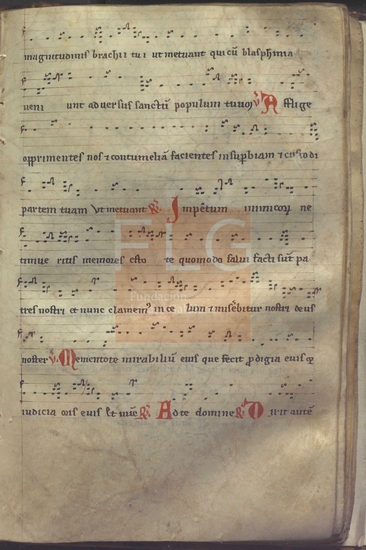 magnitudinis brachii tui ut metuant qui cū blasphmia
ueni unt aduersus sanctū populum tuum ℣ Affige
opprimentes nos ⁊ contumeliā facientes in supbiam ⁊ custodi
partem tuam Ut metuant ℟ Impetum inimicorꝝ ne
timue ritis memores esto te quomodo salui facti sūt pa
tres nostri et nunc clamemꝰ in ce lum ⁊ misebitur nostri deus
noster ℣ Mementote mirabiliū eius que fecit pdigia eius ⁊
iudicia oris eius Et nūc ℟ Ad te domine ℟ O rit autē
FLG